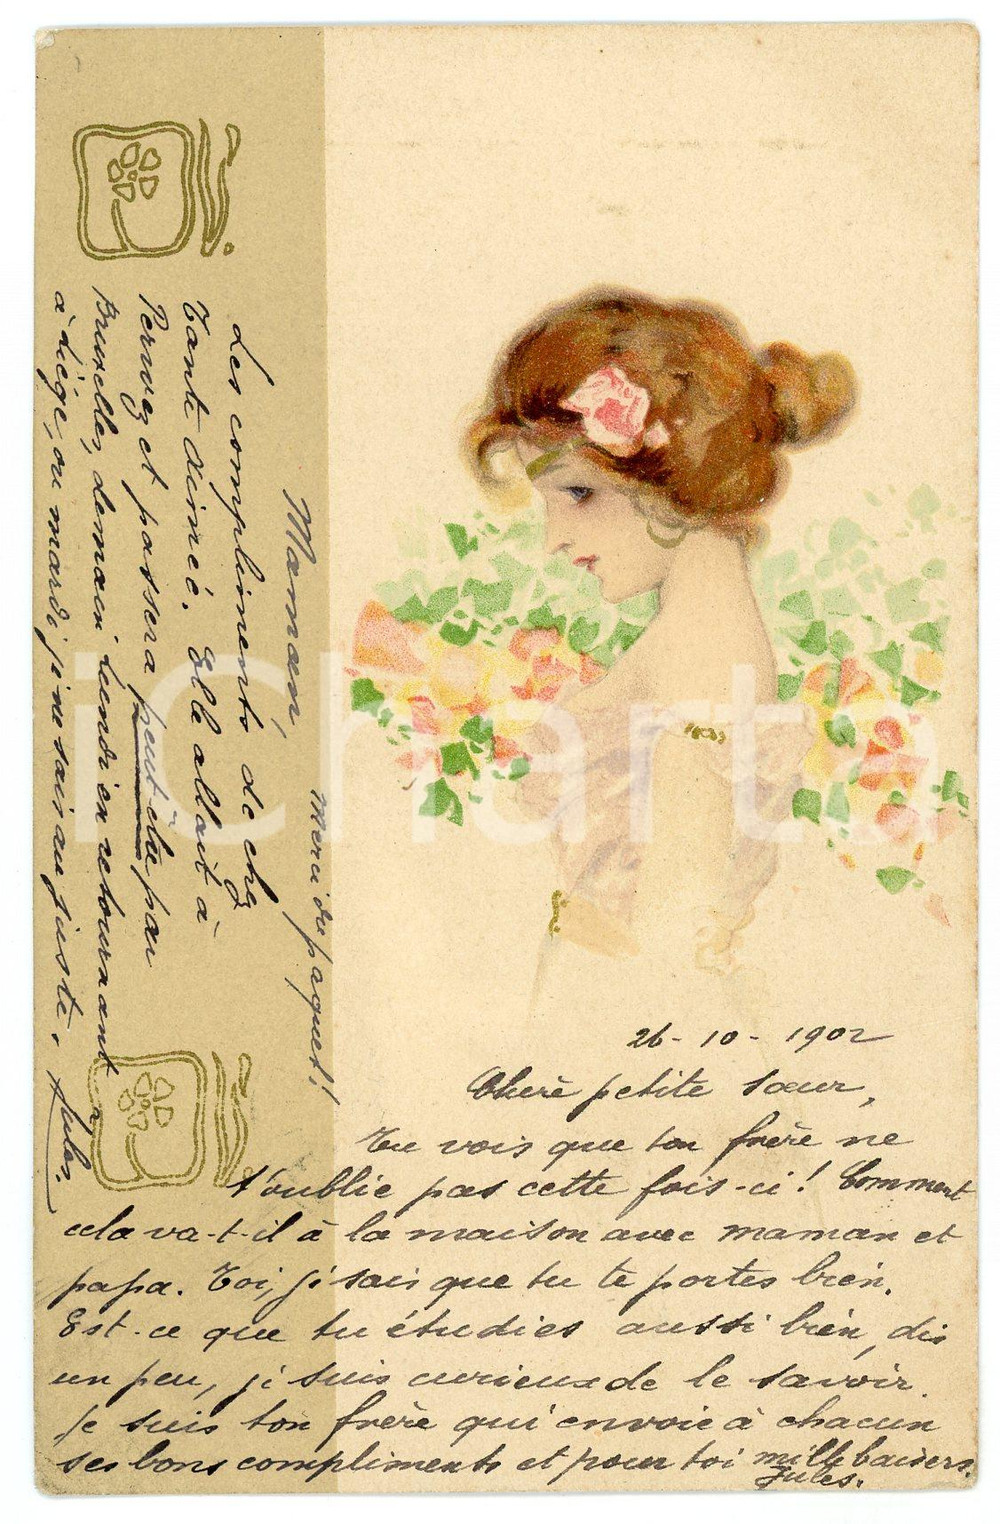 26-10-1902
Chère petite sœur,
Tu vois que ton frère ne
t'oublie pas cette fois-ci! Comment
cela va-t-il à la maison avec maman et
papa. Toi, je sais que tu te portes bien.
Est-ce que tu étudies aussi bien, dis
un peu, je suis curieux de le savoir.
Je suis ton frère qui envoie à chacun
ses bons compliments et pour toi mille baisers.
Jules.
Merci du paquet!
Maman,
Les compliments de chez
Tante Aimée. Elle allait à
Perwez et passera peut être par
Bruxelles, demain lundi en retournant
à Liège, ou mardi je ne sais au juste. Jules.
iCharta